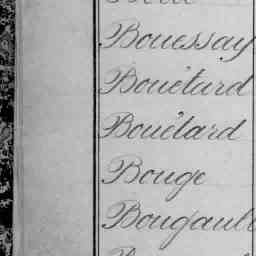 Bouessay
Bouétard
Bouétard
Bouge
Bougault